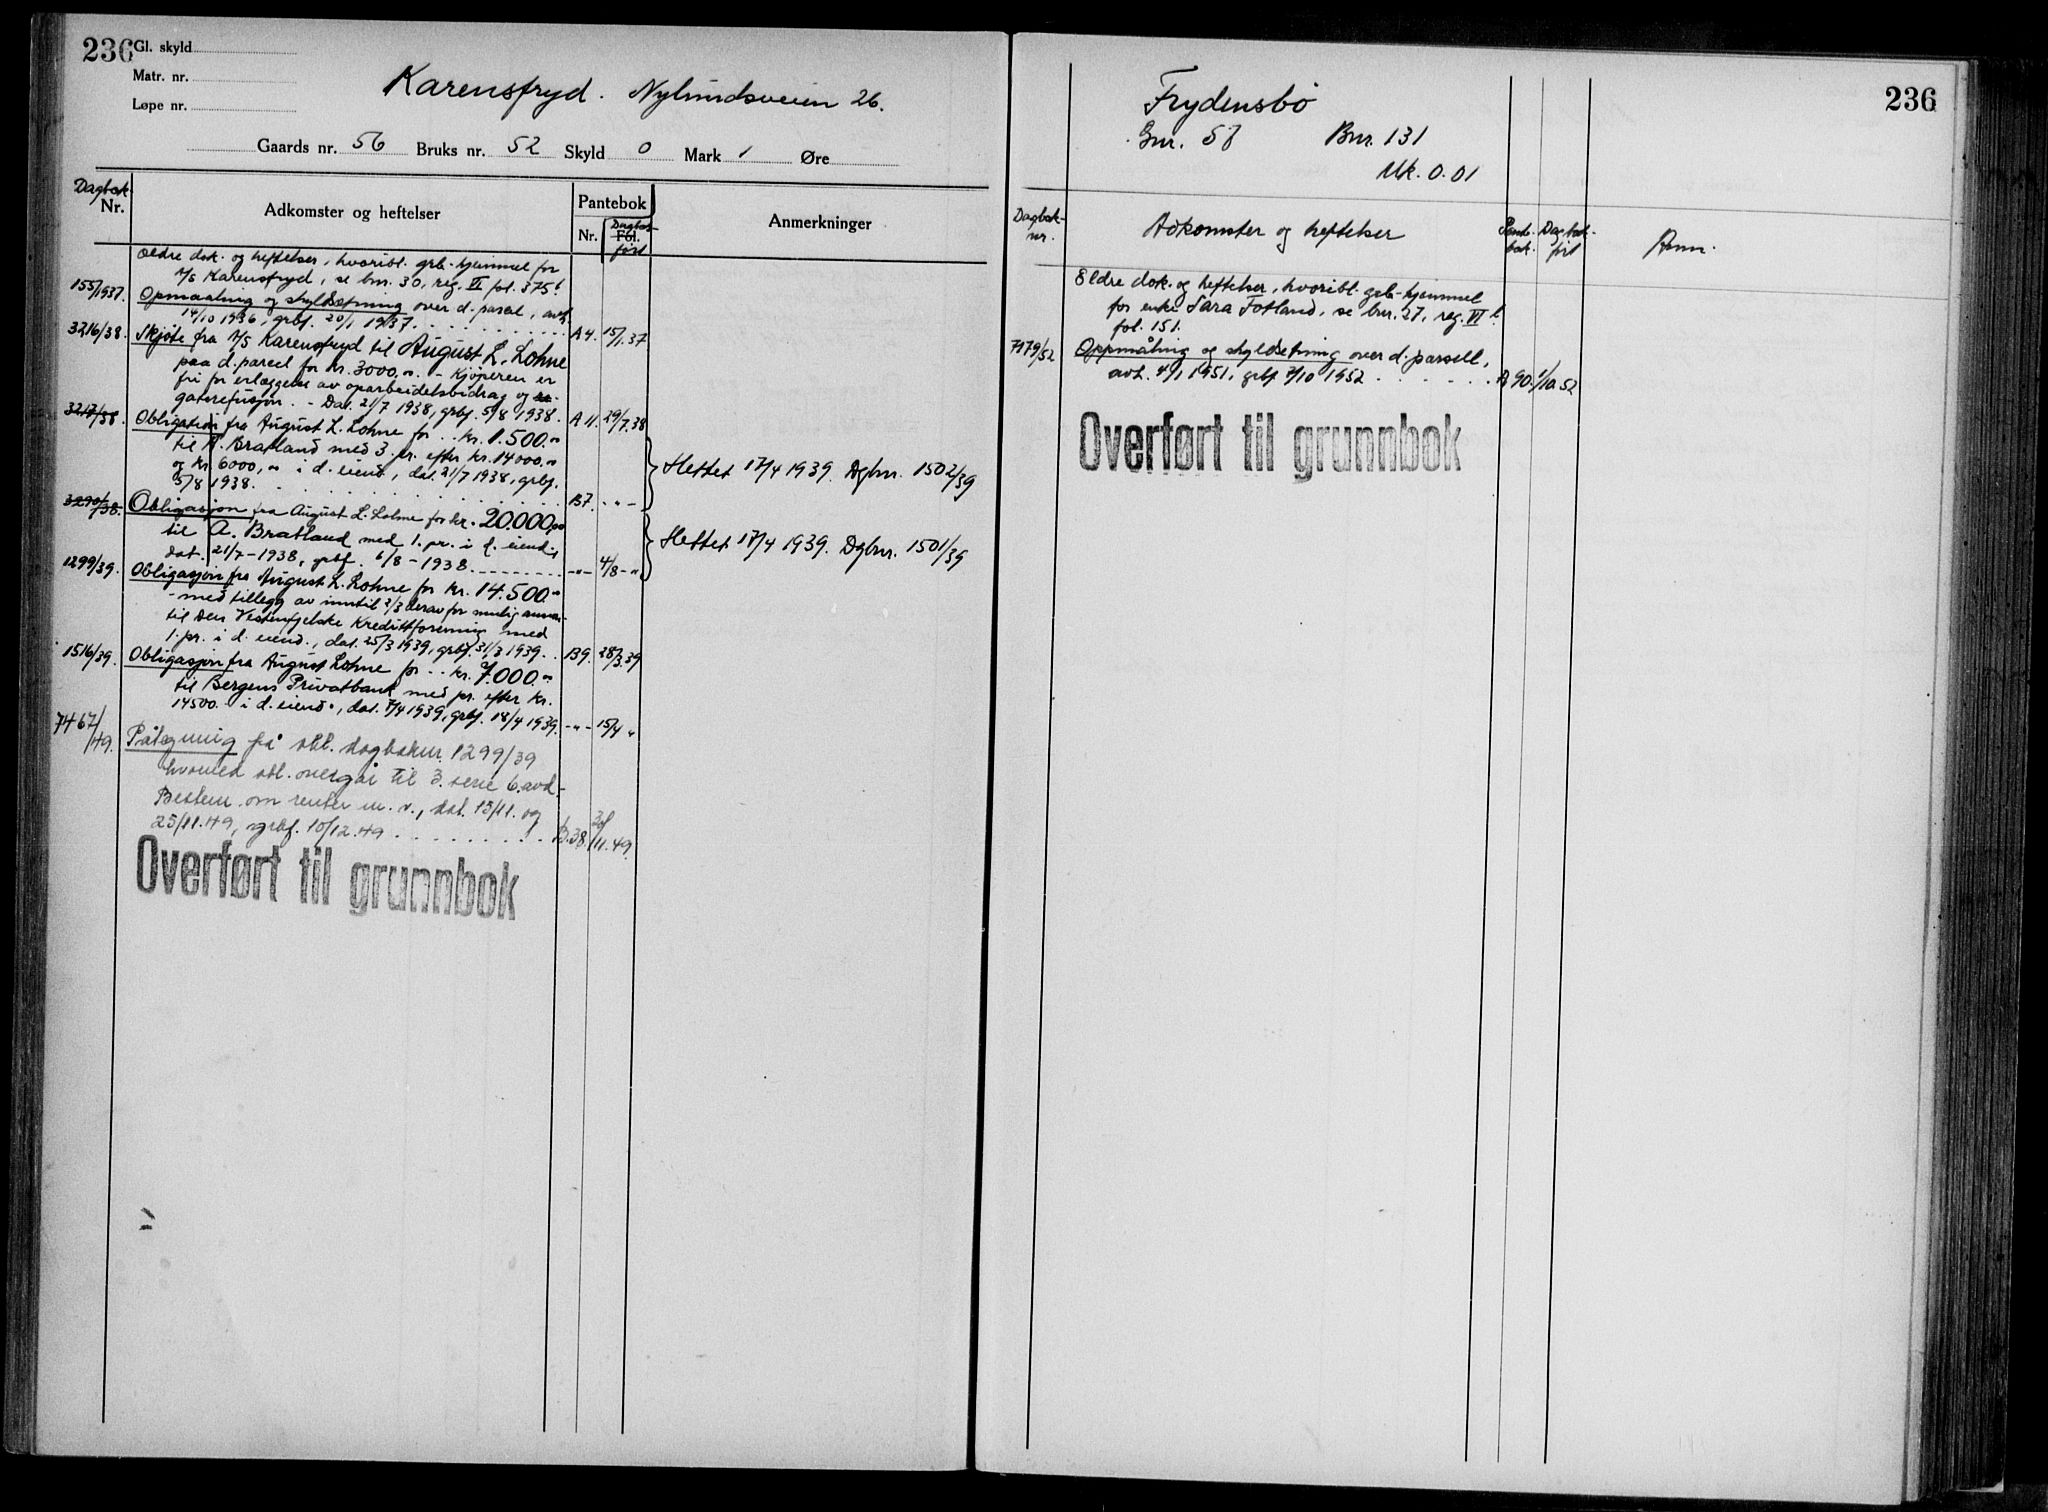 236
Gl. skyld
Matr. nr.
Løpe nr.
Karensfryd. Nylundsveien 26.
Gaards nr. 56 Bruks nr. 52 Skyld 0 Mark 1 Øre
Dagbok Nr.
Adkomster og heftelser
Pantebok
Nr.
Fol.
Dagbok ført
Anmerkninger
Ældre dok. og heftelser, hvoribl. grb-hjemmel for
A/S Karensfryd, se bnr. 30, reg. VI fol. 375b
155/1937. Opmaaling og skyldsetning over d. parcel, avh.
14/10 1936, grbf. 20/1 1937. A 4. 15/1.37
3216/38. Skjøte fra A/S Karensfryd til August L. Lohne
paa d. parcel for kr. 3000,00. - Kjøperen er
fri for erlæggelse av oparbeidelsesbidrag og
gaterefusjon. - Dat. 21/7 1938, grbf. 5/8 1938. A 11. 29/7.38
3217/38. Obligation fra August L. Lohne for .. kr. 1.500.00
til A. Bratland med 3. pr. efter kr. 14000,00
og kr. 6000,00 i d. eiend., dat. 21/7 1938, grbf.
5/8 1938. B7. -"-
Slettet 17/4 1939. Dgbnr. 1502/39
3290/38. Obligasjon fra August L. Lohne for kr. 20.000,00
til A. Bratland med 1. pr. i d. eiend.,
dat. 21/7-1938, grbf. 6/8-1938. -"- 4/8-"
Slettet 17/4 1939. Dgbnr. 1501/39
1299/39. Obligasjon fra August L. Lohne for kr. 14.500.00
- med tillegg av inntil 2/3 derav for mulig
til Den Vestenfjelske Kredittforening med
1. pr. i d. eiend., dat. 25/3 1939, grbf. 31/3 1939. B9. 28/3.39
1516/39. Obligasjon fra August Lohne for .. kr. 7.000.00
til Bergens Privatbank med pr. efter kr.
14500.- i d. eiend., dat. 7/4 1939, grbf. 18/4 1939. -"- 15/4 "
7467/49. Påtegning på obl. dagboknr. 1299/39
hvorved obl. overgår til 3. serie 6. avd.-
Bestem. om renter m. v., dat. 15/11. og
25/11.49, grbf. 10/12.49 B.38. /11.49.
Overført til grunnbok
236
Frydensbö
Gnr. 57 Bnr. 131
Mk. 0.01
Dagbok-nr.
Adkomster og heftelser
Pante-bok.
Dagbok-ført
Anm.
Eldre dok. og heftelser, hvoribl. grb-hjemmel
for enke Sara Fotland, se bnr. 27, reg. VI b
fol. 151.
7179/52 Oppmåling og skyldsetning over d. parsell,
avh. 4/1 1951, grbf 7/10 1952 A 90. 1/10 52
Overført til grunnbok